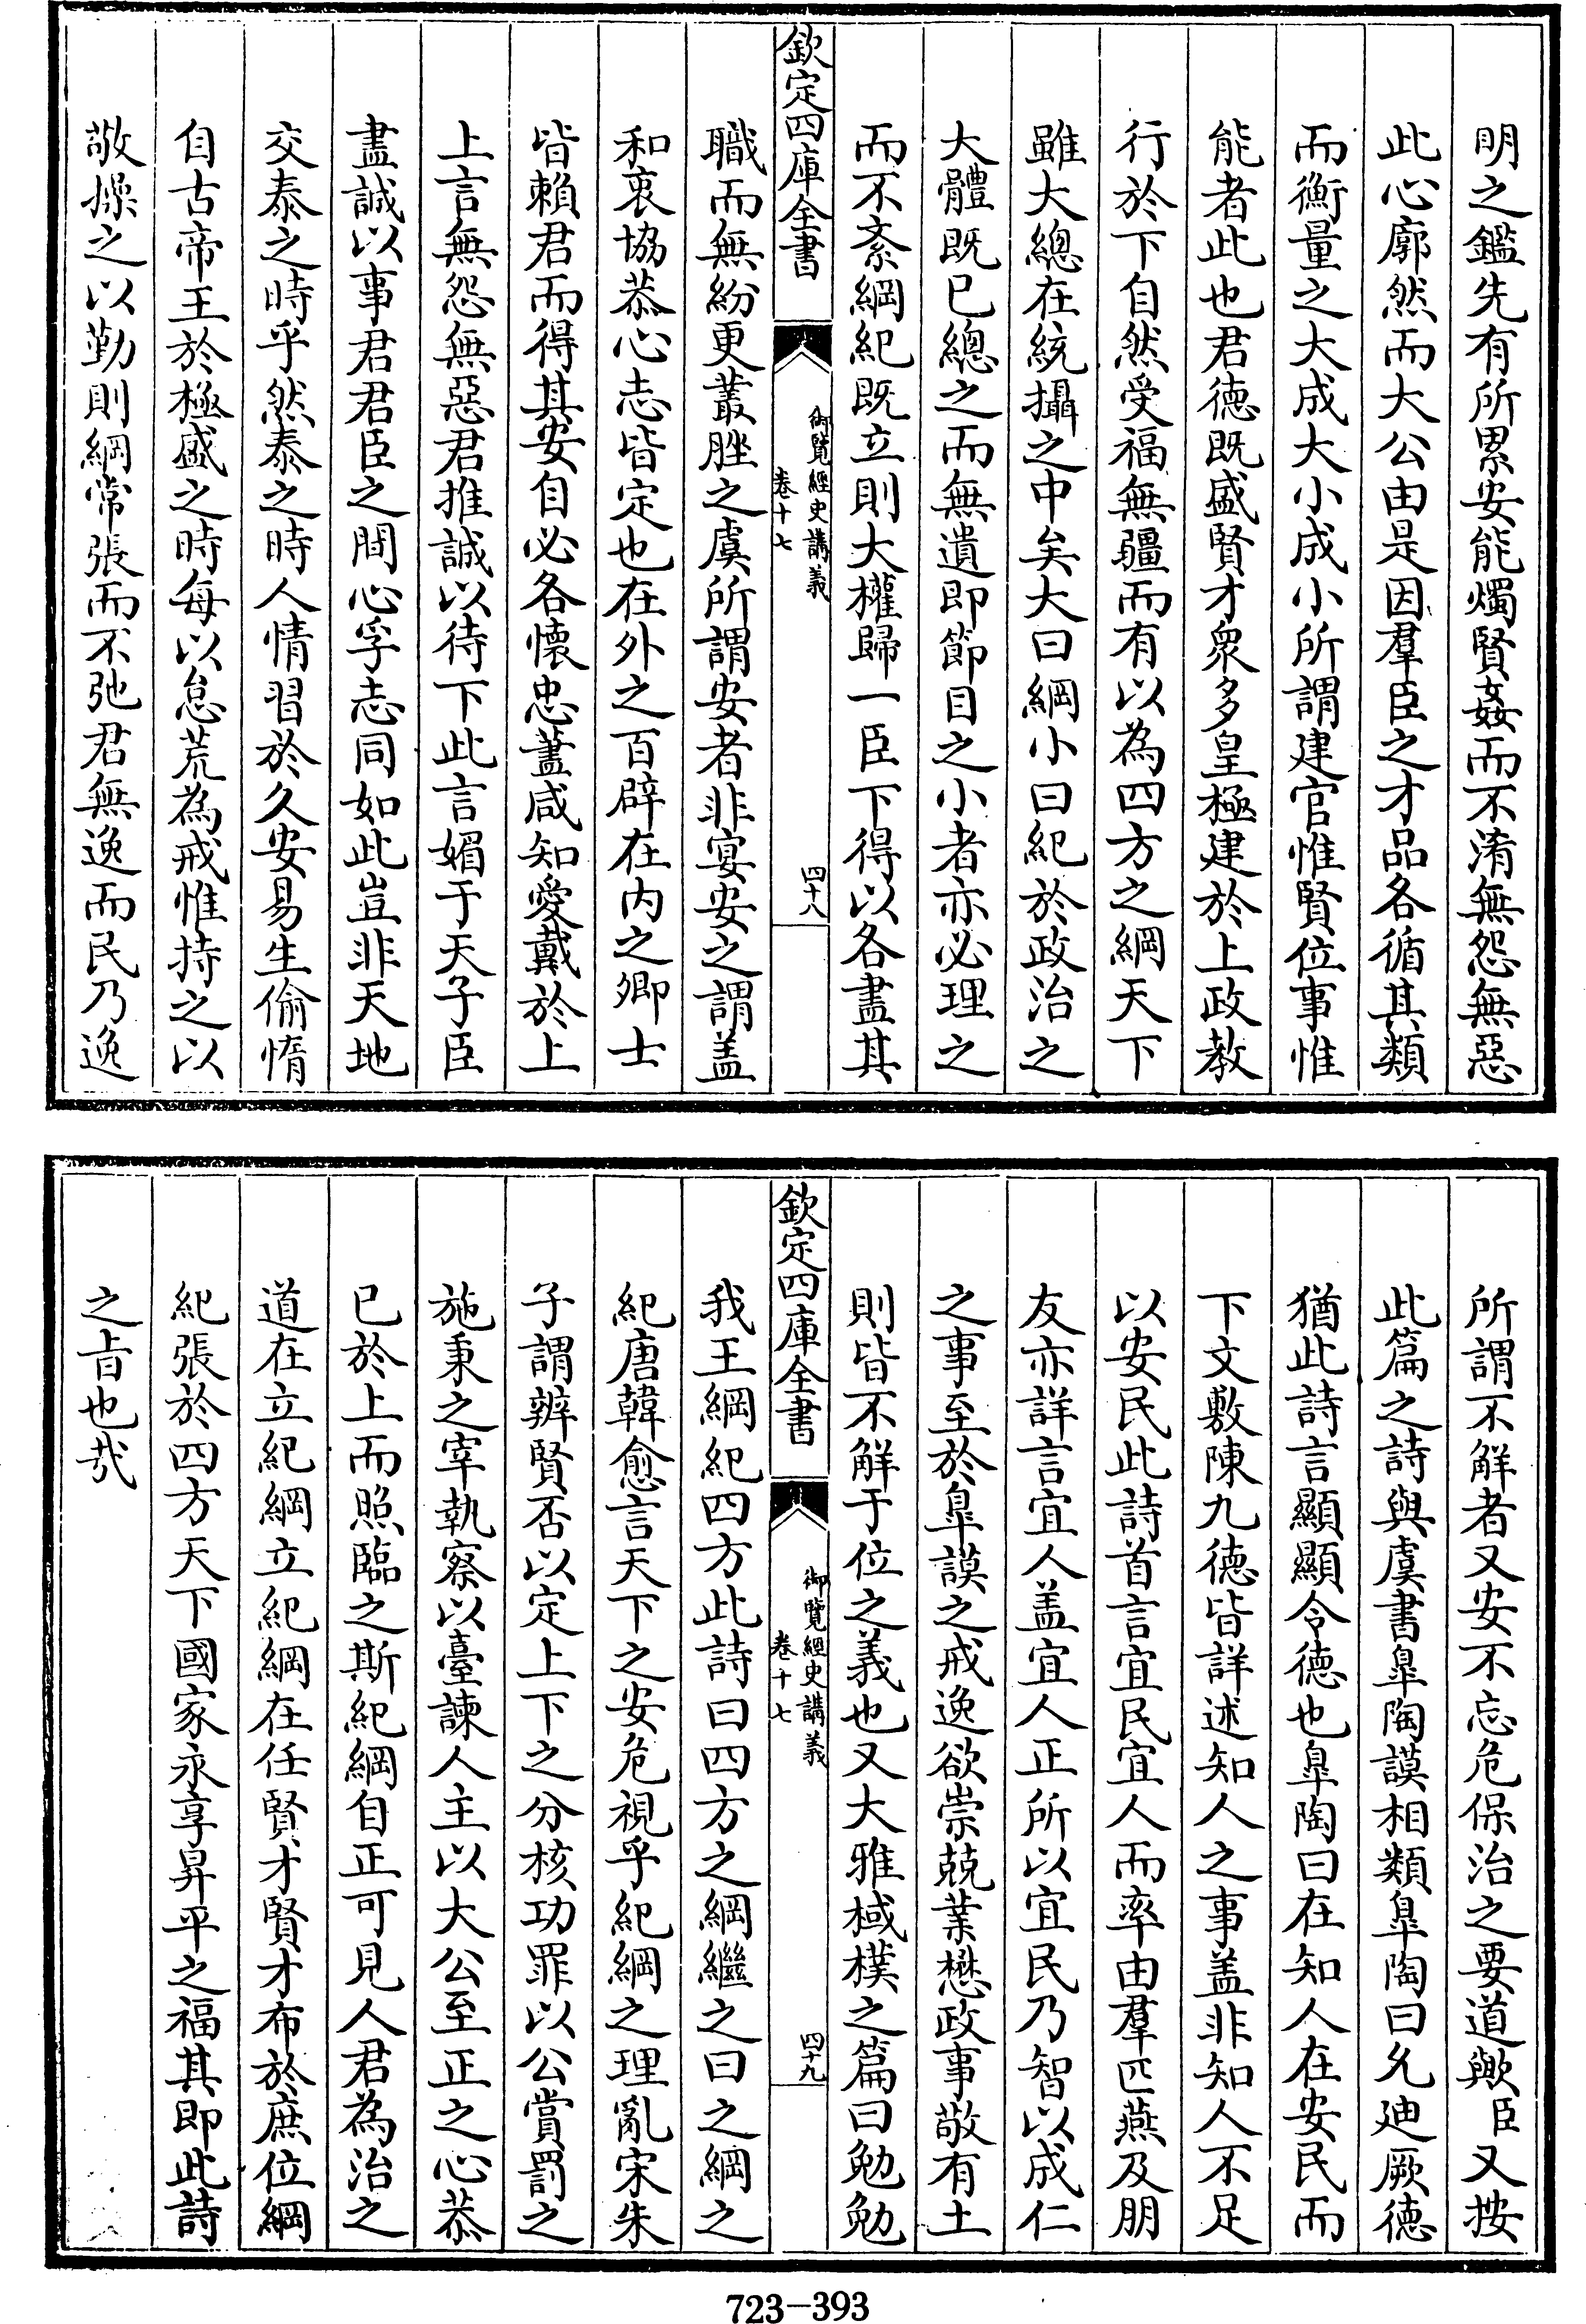 明之鑑先有所累安能燭賢姦而不淆無怨無惡
此心廓然而大公由是因羣臣之才品各循其類
而衡量之大成大小成小所謂建官惟賢位事惟
能者此也君德既盛賢才衆多皇極建於上政教
行於下自然受福無疆而有以為四方之綱天下
雖大總在統攝之中矣大曰綱小曰紀於政治之
大體既已總之而無遺即節目之小者亦必理之
而不紊綱紀既立則大權歸一臣下得以各盡其
欽定四庫全書
御覽經史講義
卷十七
四十八
職而無紛更叢脞之虞所謂安者非宴安之謂盖
和衷協恭心志皆定也在外之百辟在内之卿士
皆賴君而得其安自必各懷忠藎咸知愛戴於上
上言無怨無惡君推誠以待下此言媚于天子臣
盡誠以事君君臣之間心孚志同如此豈非天地
交泰之時乎然泰之時人情習於久安易生偷惰
自古帝王於極盛之時每以怠荒為戒惟持之以
敬操之以勤則綱常張而不弛君無逸而民乃逸
所謂不解者又安不忘危保治之要道歟臣又按
此篇之詩與虞書臯陶謨相類臯陶曰允迪厥德
猶此詩言顯顯令德也臯陶曰在知人在安民而
下文敷陳九德皆詳述知人之事盖非知人不足
以安民此詩首言宜民宜人而率由羣匹燕及朋
友亦詳言宜人盖宜人正所以宜民乃智以成仁
之事至於臯謨之戒逸欲崇兢業懋政事敬有土
則皆不解于位之義也又大雅棫樸之篇曰勉勉
欽定四庫全書
御覽經史講義
卷十七
四十九
我王綱紀四方此詩曰四方之綱繼之曰之綱之
紀唐韓愈言天下之安危視乎紀綱之理亂宋朱
子謂辨賢否以定上下之分核功罪以公賞罰之
施秉之宰執察以臺諫人主以大公至正之心恭
已於上而照臨之斯紀綱自正可見人君為治之
道在立紀綱立紀綱在任賢才賢才布於庶位綱
紀張於四方天下國家永享昇平之福其即此詩
之旨也哉
723-393